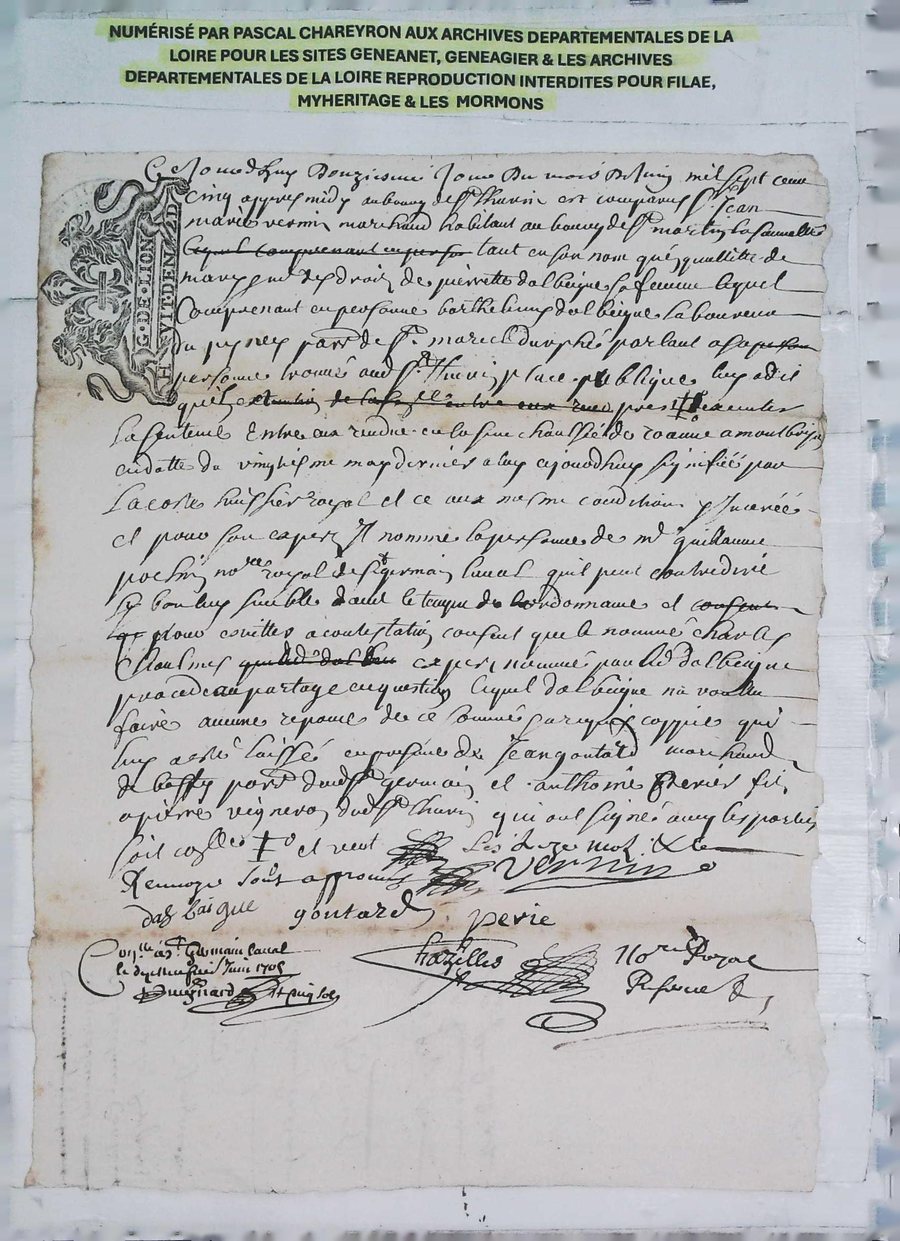 NUMÉRISÉ PAR PASCAL CHAREYRON AUX ARCHIVES DEPARTEMENTALES DE LA
LOIRE POUR LES SITES GENEANET, GENEAGIER & LES ARCHIVES
DEPARTEMENTALES DE LA LOIRE REPRODUCTION INTERDITES POUR FILAE,
MYHERITAGE & LES MORMONS
G·DE·LION
HVIT DEN
Ce Jourdhuy Douziesme Jour Du mois De Juin mil sept cens
cinq appres midy au bourg de St Thurin est comparu Sr Jean
marie vernin marchand habitant au bourg de St martin la sauvetté
tant en son nom que quallitte de
mary et me des droits de pierrette dalbeigue sa femme lequel
Comprenant en personne barthellemy dalbeigue laboureur
du parr de St marcel durphé parlant a sa
personne trouvé aud St Thurin place publique luy a dit
quil executer
La sentence Entre eux rendue en la senechaussée de roanne a montbrison
en datte du vingtiesme may dernier a luy ce jourdhuy signiffiée par
Lacoste huissier royal et ce aux mesme condition y Inserée
et pour son expert Il nomme la personne de me guillaume
nore royal de St germain laval quil peut contredire
sy bon luy semble dans le temps de lordonnance et
pour eviter a contestation consent que le nommé charles
Chaulmes expert nommé par led dalbeigue
procede au partage en question lequel dalbeigue na voullu
faire aucune reponce de ce sommé coppie qui
luy a esté laissé en presence de Jean goutard marchand
de parr dud St germain et anthoine perier fils
a pierre vigneron dud St Thurin qui ont signé avec les parties
et veut Les mot
Renvoye sous approuvé vernin
dalbaigue goutard perie
Conlle a St Germain laval
le Juin 1705
Nore Royal